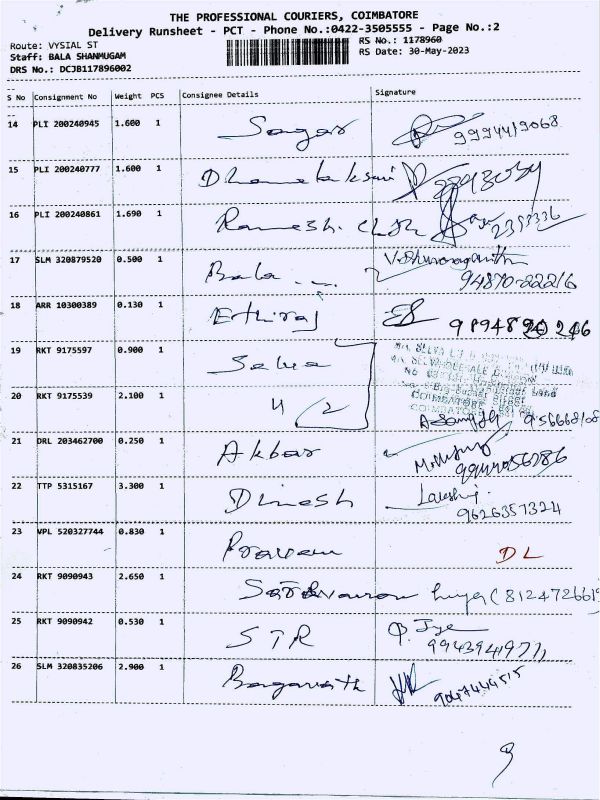 THE PROFESSIONAL COURIERS, COIMBATORE
Delivery Runsheet - PCT - Phone No.:0422-3505555 - Page No.:2
Route: VYSIAL ST
Staff: BALA SHANMUGAM
DRS No.: DCJB117896002
RS No.: 1178960
RS Date: 30-May-2023
S No Consignment No Weight PCS Consignee Details Signature
14 PLI 200240945 1.600 1 Sagar 9994419068
15 PLI 200240777 1.600 1
16 PLI 200240861 1.690 1 Ramesh. 2353336
17 SLM 320879520 0.500 1 Bala 94870-22216
18 ARR 10300389 0.130 1 Ethiraj 9894820246
19 RKT 9175597 0.900 1 Selva
20 RKT 9175539 2.100 1 " 2
COIMBATORE
21 DRL 203462700 0.250 1 Akbar
22 TTP 5315167 3.300 1 Dinesh 9626357324
23 VPL 520327744 0.830 1 Praveen DL
24 RKT 9090943 2.650 1 Saravanan
25 RKT 9090942 0.530 1 STR
26 SLM 320835206 2.900 1 Bagavath 9047444515